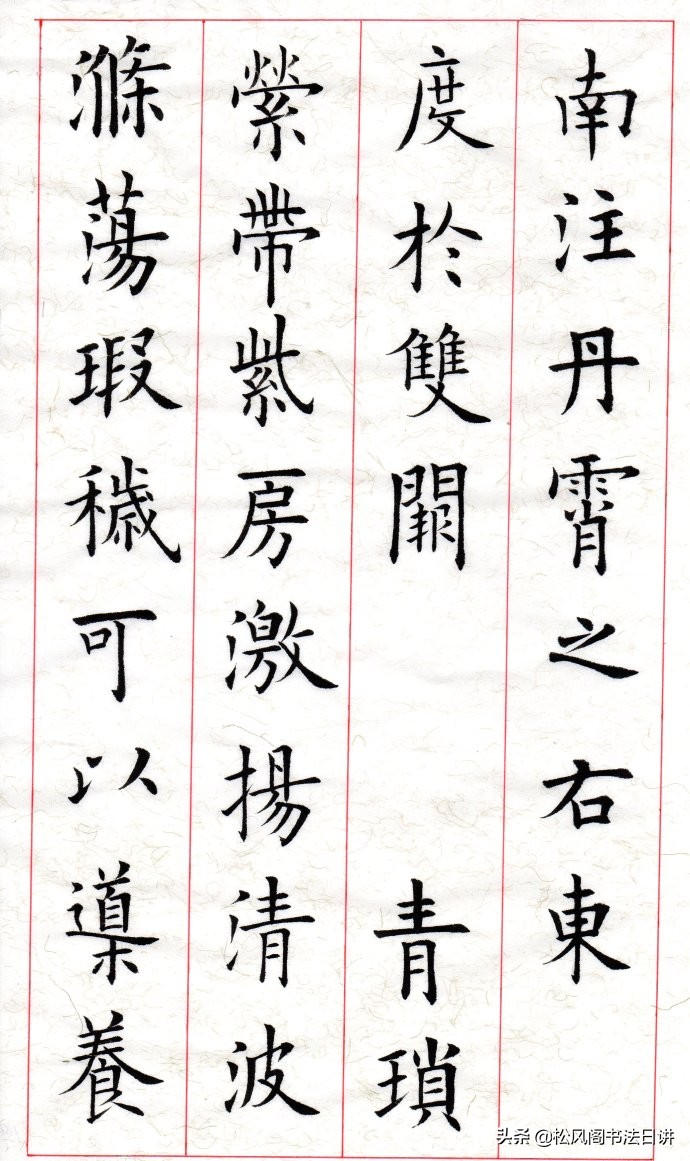 南注丹霄之右東
度於雙闕 青瑣
縈帶紫房激揚清波
滌蕩瑕穢可以導養
头条 @松风阁书法日讲